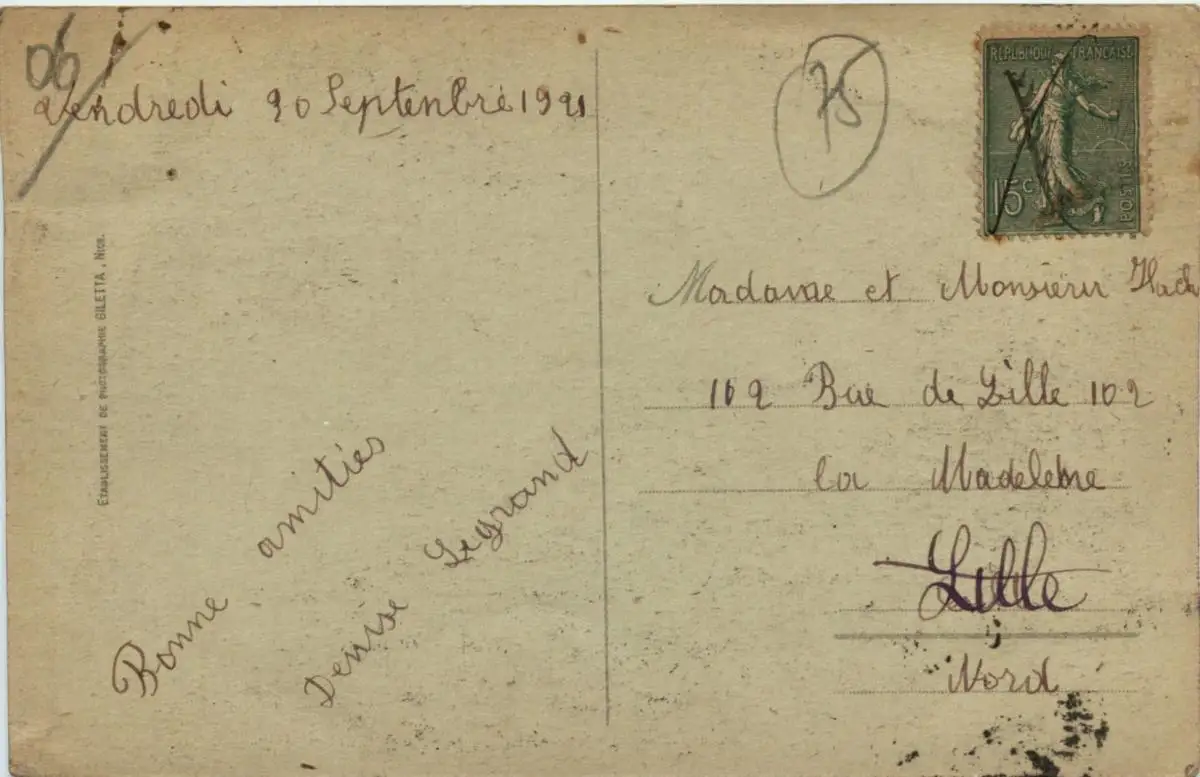 06
Vendredi 20 Septenbre 1921
ETABLISSEMENT DE PHOTOGRAPHIE GILETTA, NICE.
Bonne amitiés
Denise Legrand
75
REPUBLIQUE FRANÇAISE
15c
POSTES
Madame et Monsieur
102 Rue de Lille 102
la Madeleine
Lille
Nord